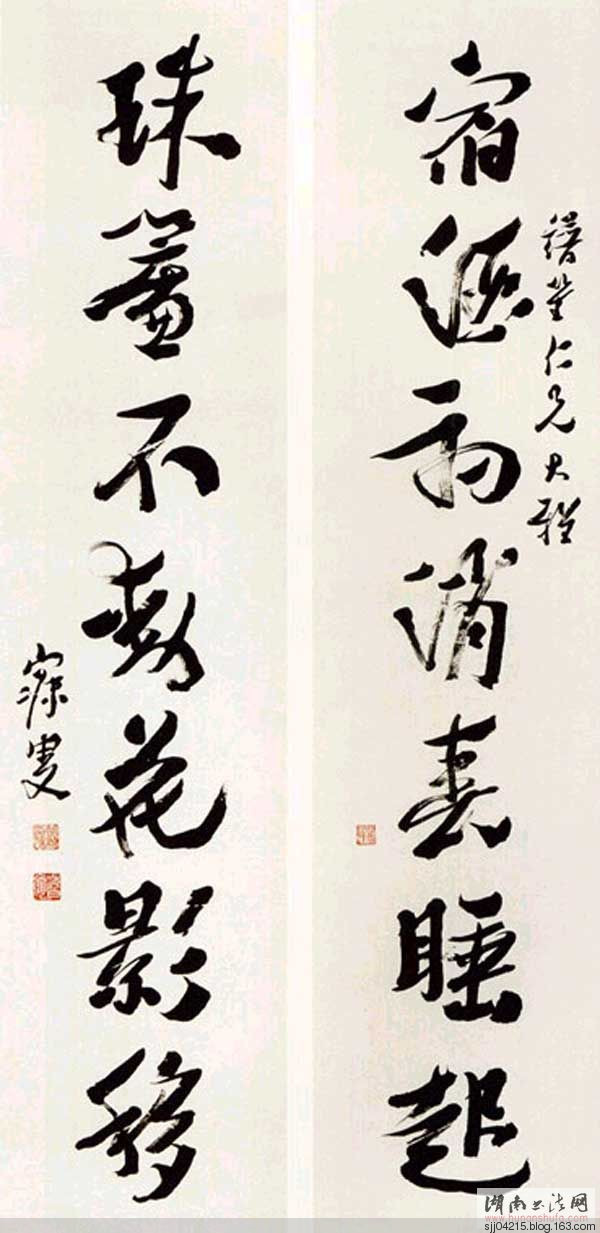 仁兄大雅
宿酒初消春睡起
珠簾不動花影移
寐叟
湖南书法网
www.hunanshufa.com
sjj04215.blog.163.com